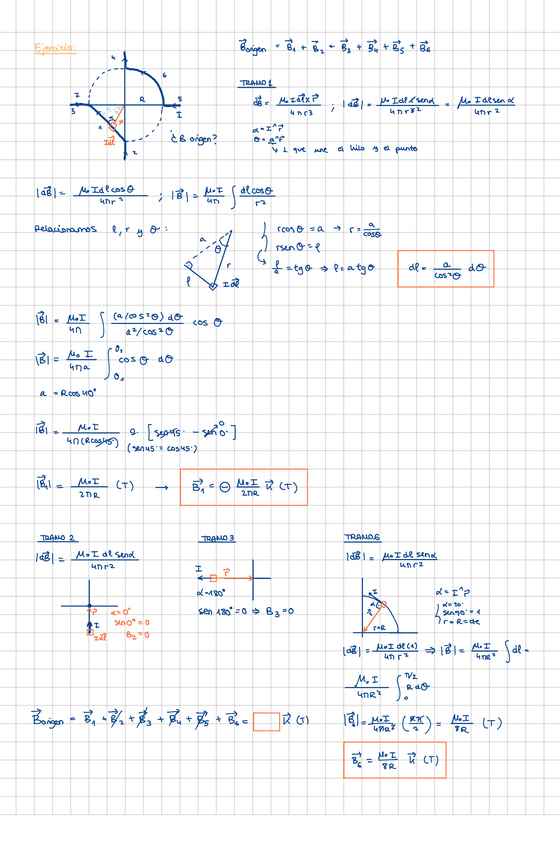 Ejercicio:
B⃗origen = B⃗1 + B⃗2 + B⃗3 + B⃗4 + B⃗5 + B⃗6
4
6
I
R
5
3
I
1
Idl
2
¿B origen?
TRAMO 1
dB⃗ = μ0 I dl⃗ x r⃗ / 4πr3 ; |dB⃗| = μ0 I dl r senα / 4πr3 = μ0 I dl senα / 4πr2
α = I^r⃗
θ = a^r⃗
↳ ⊥ que une el hilo y el punto
|dB⃗| = μ0 I dl cosθ / 4πr2 ; |B⃗| = μ0 I / 4π ∫ dl cosθ / r2
Relacionamos l, r y θ:
a
θ
r
l
Idl
r cosθ = a → r = a / cosθ
r senθ = l
l/a = tgθ ⇒ l = a tgθ
dl = a / cos2θ dθ
|B⃗| = μ0 I / 4π ∫ (a/cos2θ) dθ / a2/cos2θ cos θ
|B⃗| = μ0 I / 4πa ∫θ1θ2 cos θ dθ
a = R cos 40°
|B⃗| = μ0 I / 4π(R cos45°) 2 · [sen45° - sen0°] 0
(sen45° = cos45°)
|B⃗1| = μ0 I / 2πR (T) → B⃗1 = ⊖ μ0 I / 2πR k⃗ (T)
TRAMO 2
|dB⃗| = μ0 I dl senα / 4πr2
P
I
Idl
α=0°
sen0°=0
B2=0
TRAMO 3
I
r⃗
α=180°
sen 180° = 0 ⇒ B3 = 0
TRAMO 6
|dB⃗| = μ0 I dl senα / 4πr2
I
α
r=R
α = I^r
sen90° = 1
r = R = cte
|dB⃗| = μ0 I dl (1) / 4πr2 ⇒ |B⃗| = μ0 I / 4πR2 ∫ dl =
μ0 I / 4πR2 ∫0π/2 R dθ
B⃗origen = B⃗1 + B⃗2 + B⃗3 + B⃗4 + B⃗5 + B⃗6 = k⃗ (T)
|B⃗6| = μ0 I / 4πR2 (Rπ / 2) = μ0 I / 8R (T)
B⃗6 = μ0 I / 8R k⃗ (T)